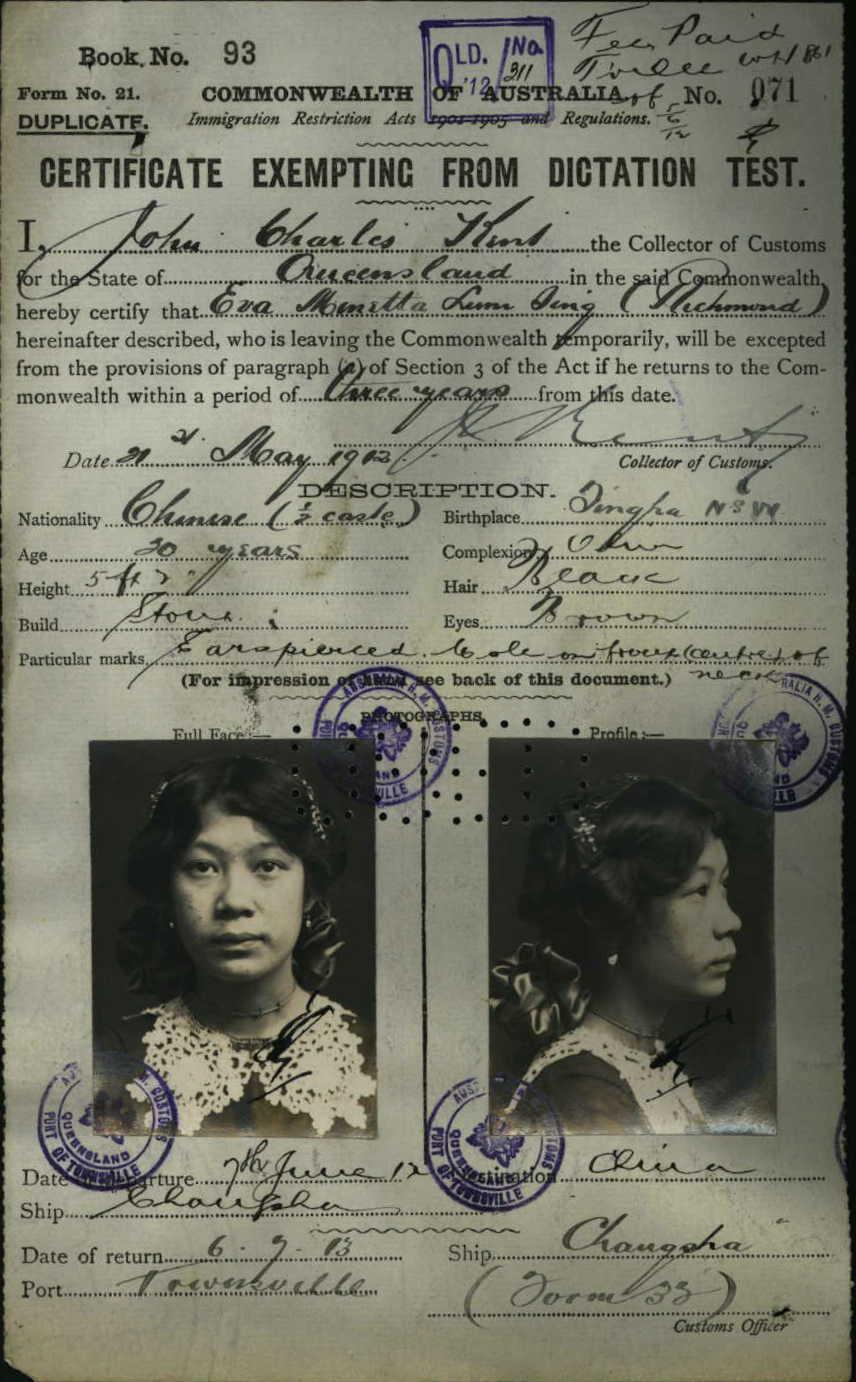 Book. No. 93
QLD. No.
'12 / 311
Fee Paid
Form No. 21. COMMONWEALTH OF AUSTRALIA. No. 071
DUPLICATE. Immigration Restriction Acts 1901-1905 and Regulations.
CERTIFICATE EXEMPTING FROM DICTATION TEST.
I, John Charles Kent the Collector of Customs
for the State of Queensland in the said Commonwealth,
hereby certify that Eva Lum Sing (Richmond)
hereinafter described, who is leaving the Commonwealth temporarily, will be excepted
from the provisions of paragraph (a) of Section 3 of the Act if he returns to the Com-
monwealth within a period of three years from this date.
Date 21st May 1912
Kent
Collector of Customs.
DESCRIPTION.
Nationality Chinese (½ caste) Birthplace Tingha NSW
Age 20 years Complexion Olive
Height 5 ft Hair Black
Build Stout Eyes Brown
Particular marks Ears pierced. Mole on front (centre) of
neck
(For impression of hand, see back of this document.)
PHOTOGRAPHS.
Full Face:— Profile:—
PORT OF TOWNSVILLE
QUEENSLAND
Date of departure 7th June 12 Destination China
Ship Changsha
Date of return 6.9.13 Ship Changsha
Port Townsville (Form 33)
Customs Officer